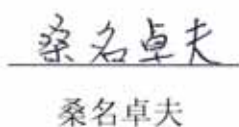 桑名卓夫
桑名卓夫